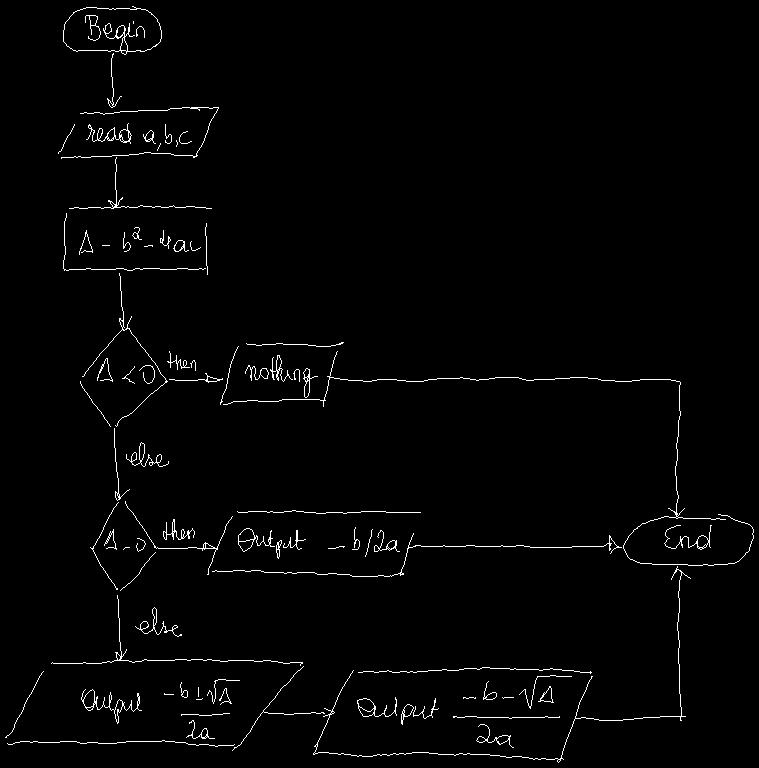 Begin
read a,b,c
Δ - b² - 4ac
Δ < 0
then
nothing
else
Δ - 0
then
Output -b/2a
End
else
Output (-b ± √Δ)/2a
Output (-b - √Δ)/2a